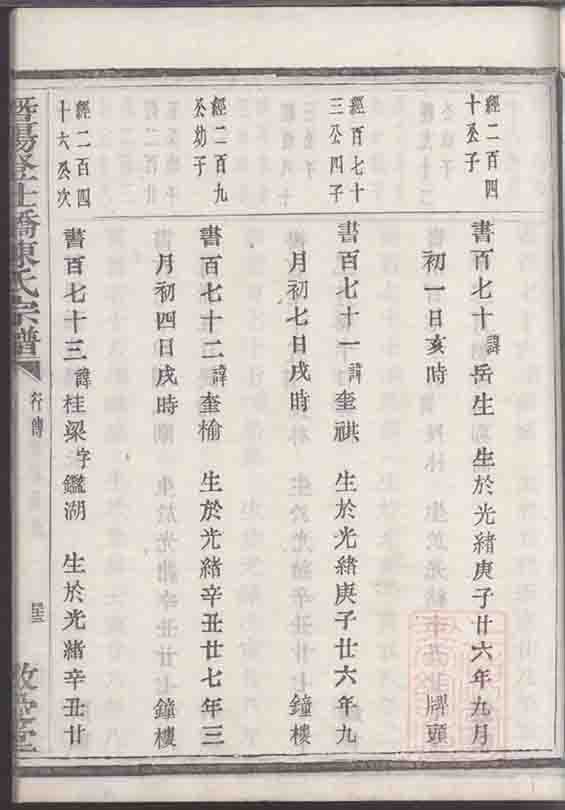 經二百四
十公子
書百七十諱岳生 生於光緒庚子廿六年九月
初一日亥時 牌頭
經百七十
三公四子
書百七十一諱奎祺 生於光緒庚子廿六年九
月初七日戌時 鐘樓
經二百九
公幼子
書百七十二諱奎榆 生於光緒辛丑廿七年三
月初四日戌時 鐘樓
經二百四
十六公次
書百七十三諱桂梁字鑑湖 生於光緒辛丑廿
陳氏宗譜
行傳